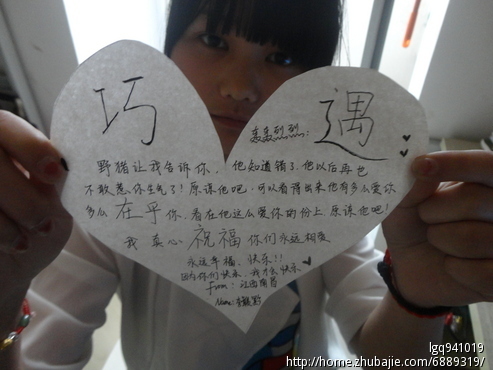 巧
轰轰烈烈：
遇
野猪让我告诉你，他知道错了，他以后再也
不敢惹你生气了！原谅他吧，可以看得出来他有多么爱你
多么在乎你，看在他这么爱你的份上，原谅他吧！
我真心祝福你们永远相爱
永远幸福，快乐！！
因为你们快乐，我才会快乐
From：江西南昌
Name：
lgq941019
http://home.zhubajie.com/6889319/